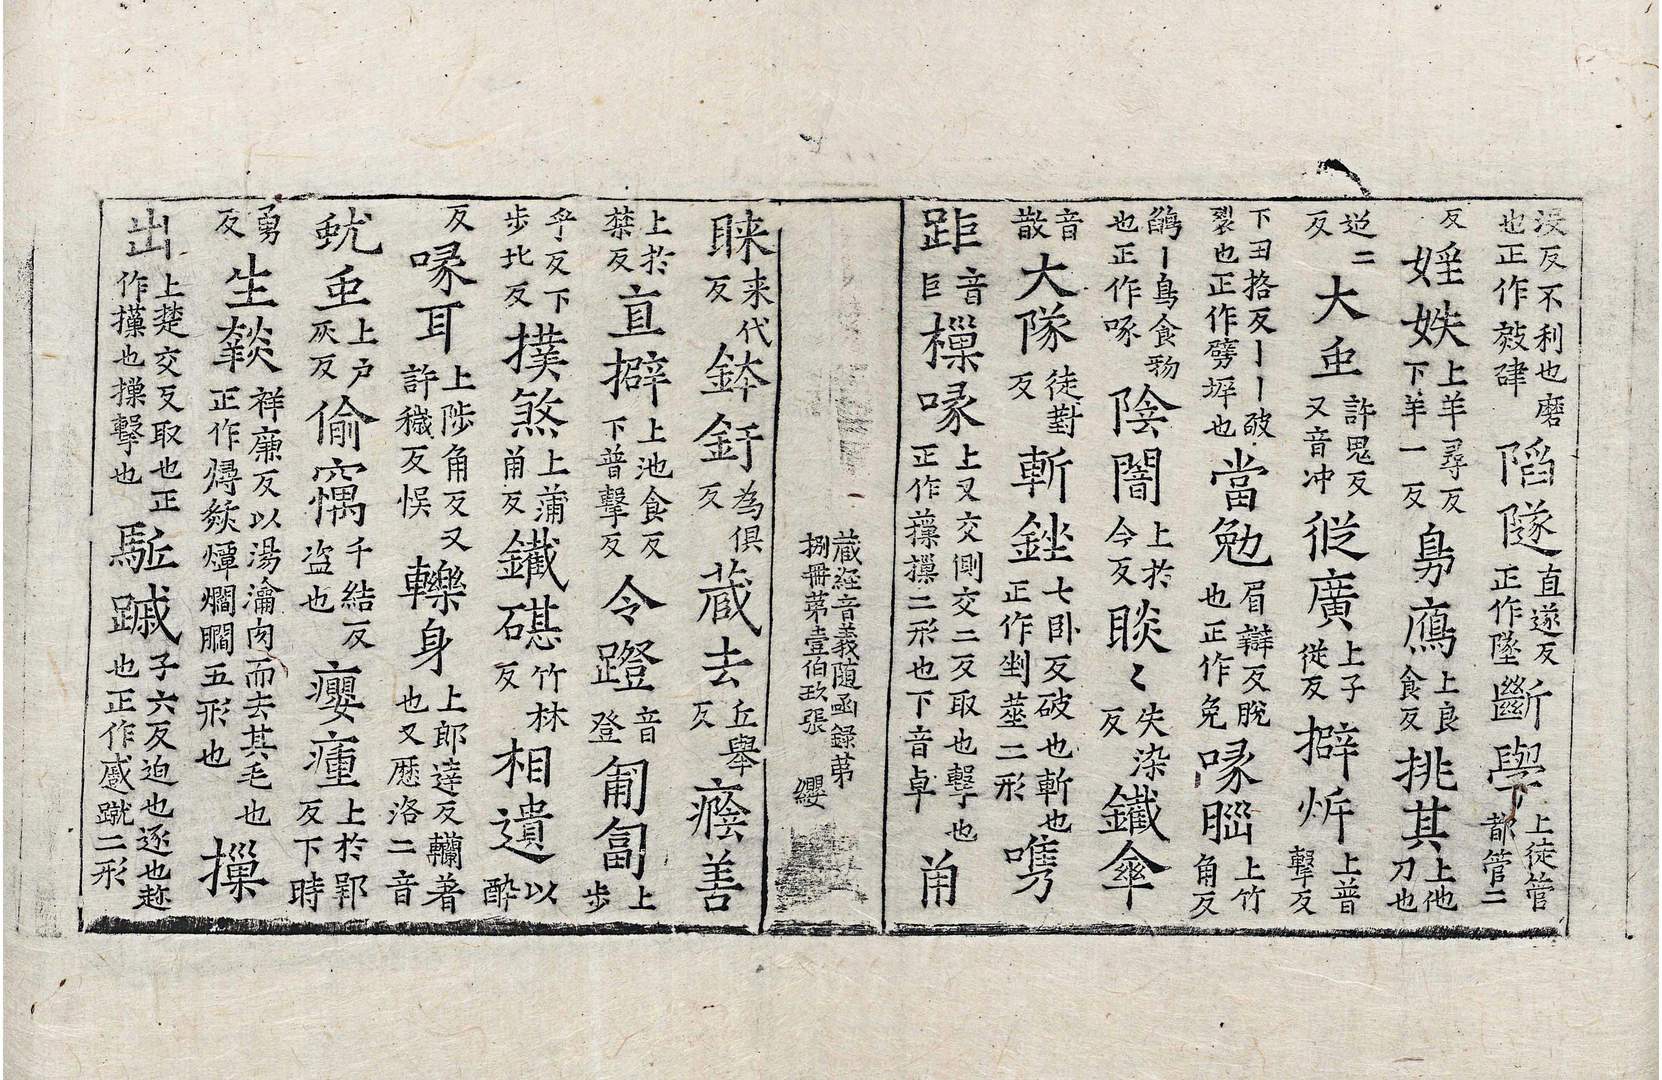 浸反不利也磨也正作㱿硉䧟隧直遂反正作墜斷㪯上徒管都管二
反婬妷上羊尋反下羊一反鳥鴈上良食反挑其上他刀也
逆二反大䖝許思反又音冲従廣上子従反擗㸞上普擊反
下丑格反丨丨破裂也正作劈㙤也當勉眉辯反脫也正作免喙腦上竹角反
鵮丨鳥食物也正作啄陰闇上於今反睒〻失染反鐵傘
音散大隊徒對反斬銼七卧反破也斬也正作剉莝二形嘴
距音巨樔喙上又交側交二反取也擊也正作䕩摷二形也下音卓甫
藏經音義随函錄苐捌冊苐壹伯玖張 纓
睞来代反鉢釪為俱反蔵去丘舉反㾜善
上於禁反直擗上池食反下普擊反令蹬音登匍匐上步
乎反下步北反撲煞上蒲角反鐵碪竹林反相遺以醉
反喙耳上陟角反又許穢反悞轢身上郎達反轥著也又歷洛二音
蚘䖝上户灰反偷竊千結反盗也癭瘇上於郢反下時
勇反生䊹祥廉反以湯瀹肉而去其毛也正作燖㷋燂爓膶五形也摷
出上楚交反取也正作㩥也摷擊也駈蹴子六反迫也逐也趂也正作慼蹴二形